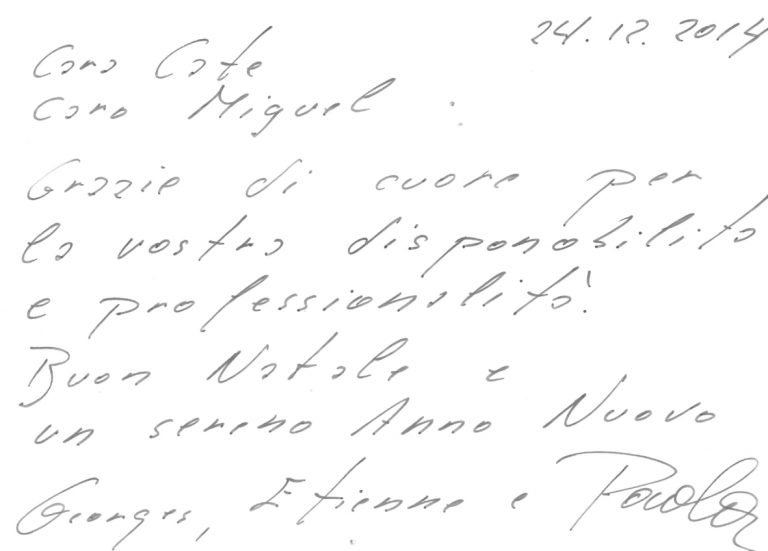 24.12.2014
Cara Cate
Caro Miguel
Grazie di cuore per
la vostra disponobilita
e professionalità.
Buon Natale e
un sereno Anno Nuovo
Georges, Etienne e Paola